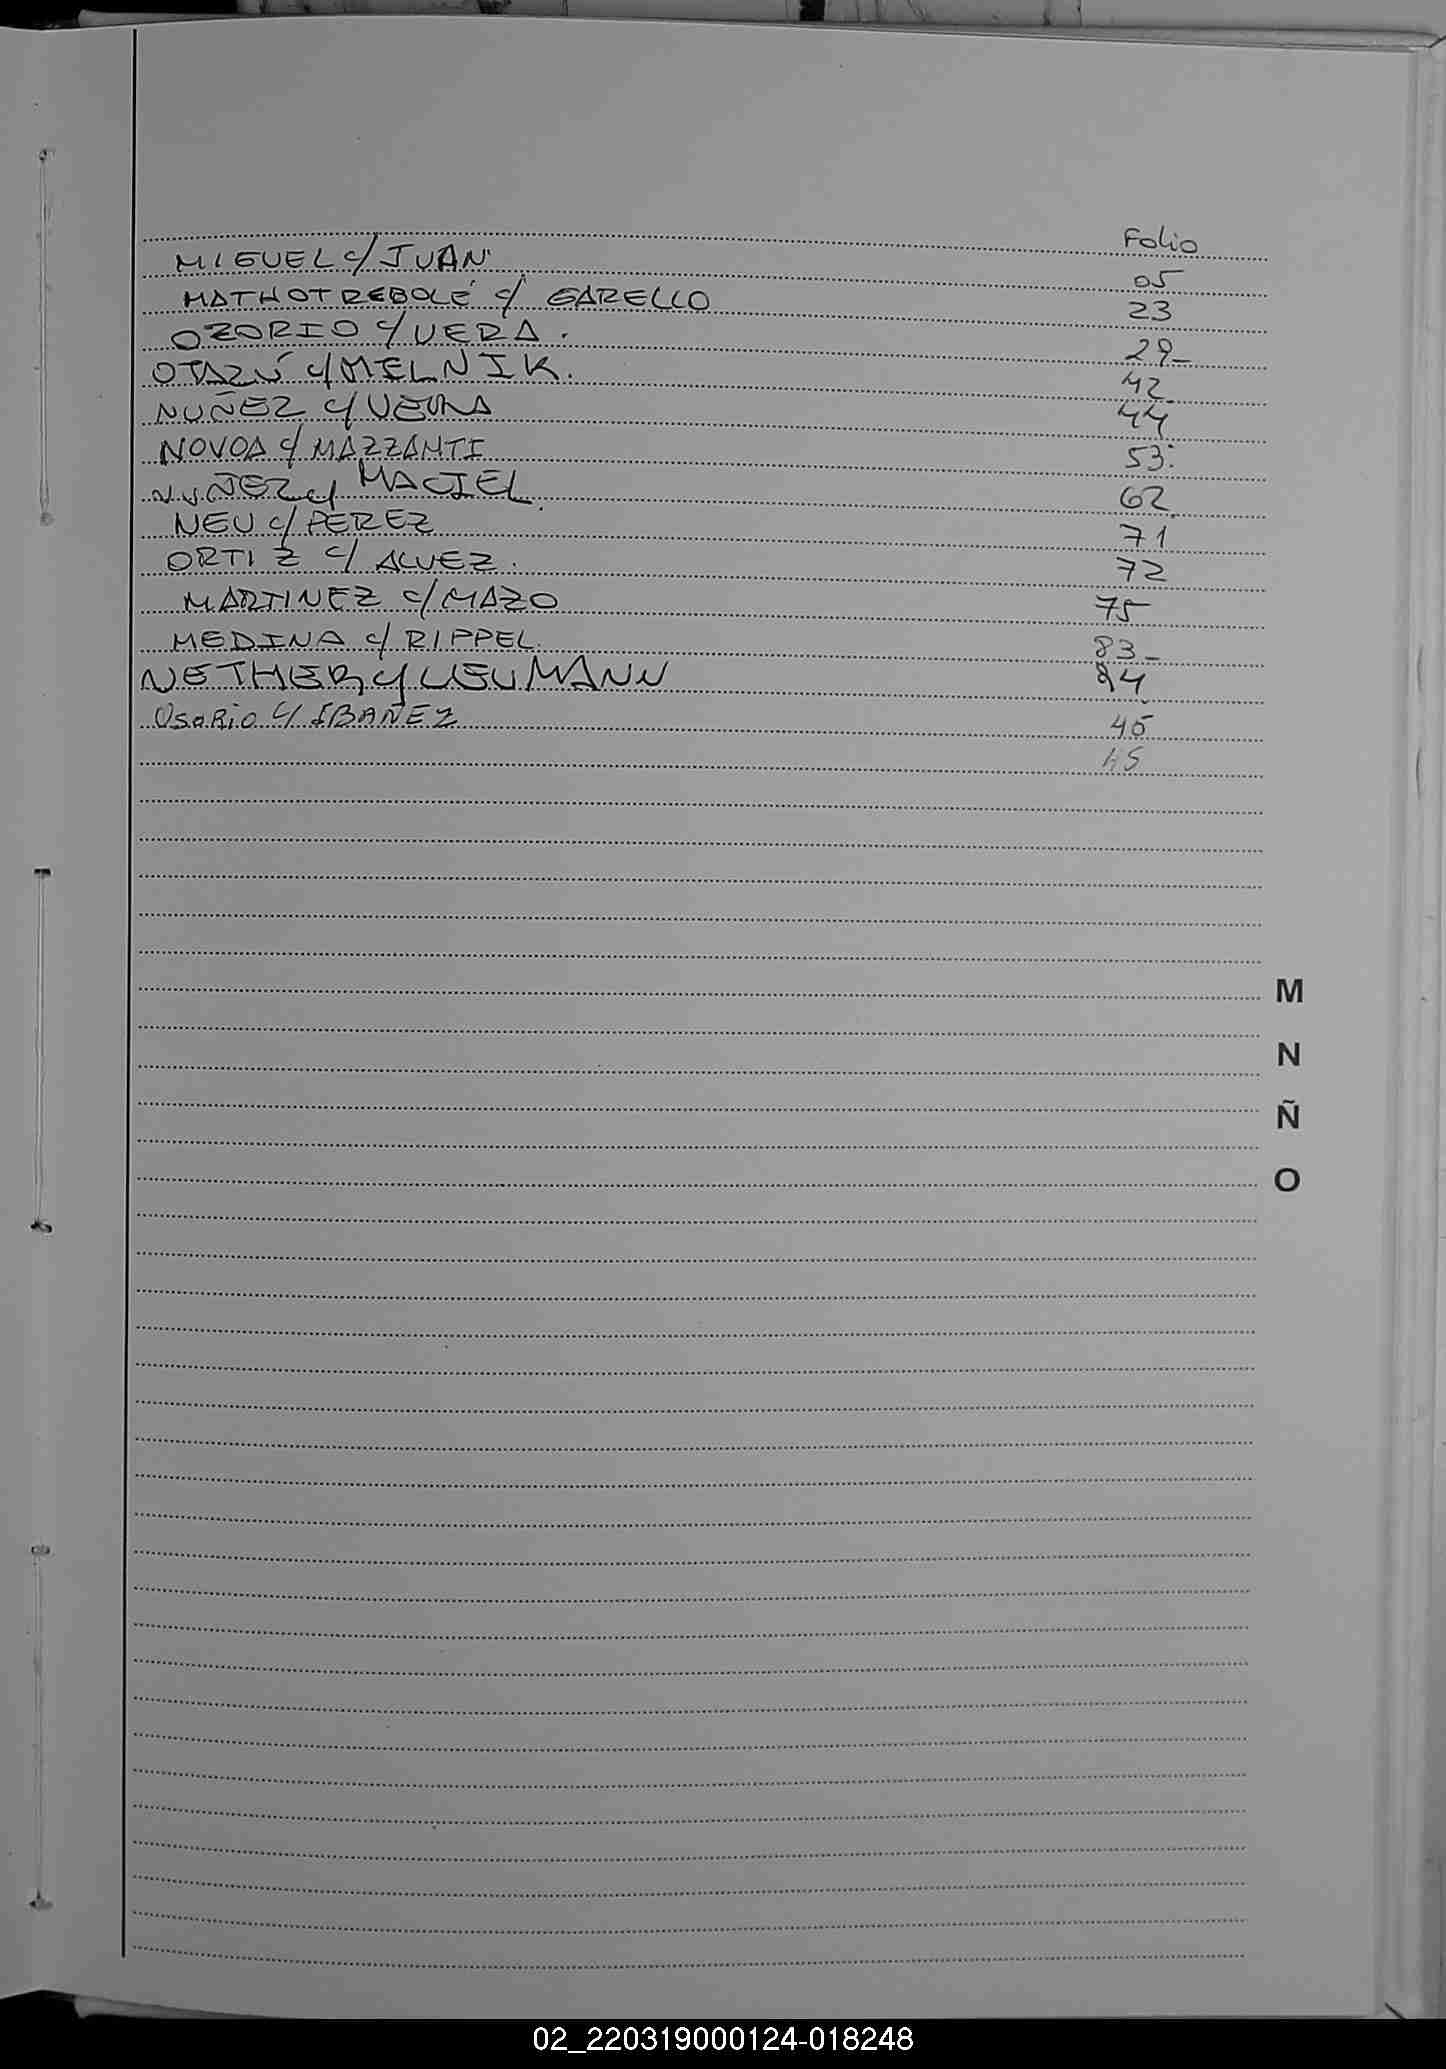 Folio
MIGUEL c/ JUAN 05
MATHOT REBOLÉ c/ GARELLO 23
OZORIO c/ VERA. 29-
OTAZÚ c/ MELNIK. 42
NUÑEZ c/ 44
NOVOA c/ MAZZANTI 53
NUÑEZ c/ MACIEL 62
NEU c/ PEREZ 71
ORTIZ c/ ALVEZ. 72
MARTINEZ c/ MAZO 75
MEDINA c/ RIPPEL. 83-
NETHER c/ LEUMANN 84
OsoRio c/ IBAÑEZ 45
45
M
N
Ñ
O
02_220319000124-018248